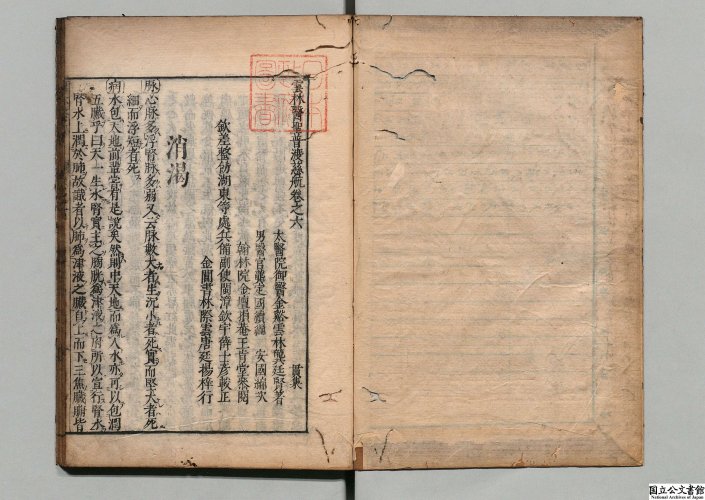 雲林醫聖普渡慈航卷之六
太醫院御醫金谿雲林龔廷賢著
貫集
男醫官龔定國續編 安國編次
翰林院金壇損菴王肯堂參閱
欽差整飭湖東等處兵備副使閩漳欽宇薛士彥較正
金閶書林際雲唐廷揚梓行
消渴
脉心脉多浮腎脉多弱又云脉數大者生沉小者死實而堅大者死
細而浮短者死
病水包天地前輩嘗有是說矣然則中天地而爲人水亦可以包潤
五臟乎曰天一生水腎實主之膀胱爲津液之府所以宣行腎水
腎水上潤於肺故識者以肺爲津液之臟自上而下三焦臟腑皆
国立公文書館
National Archives of Japan